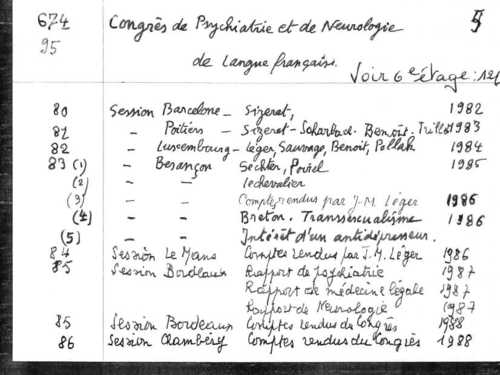 674 Congrès de Psychiatrie et de Neurologie 5
95
de Langue française.
Voir 6e étage: 121
80 Session Barcelone - Sizeret, 1982
81 - Poitiers - Sizeret - Scharbach. Benoit. Trillot 1983
82 - Luxembourg - Léger, Sauvage, Benoit, Pollak 1984
83 (1) - Besançon Sechter, Poirel 1985
(2) - - Lechevalier
(3) - - Comptes rendus par J-M. Léger 1986
(4) - - Breton. Transsexualisme 1986
(5) - - Intérêt d'un antidépresseur.
84 Session Le Mans Comptes rendus par J.M. Léger 1986
85 Session Bordeaux Rapport de psychiatrie 1987
Rapport de médecine légale 1987
Rapport de Neurologie 1987
85 Session Bordeaux Comptes rendus du Congrès 1988
86 Session Chambéry Comptes rendus du Congrès 1988